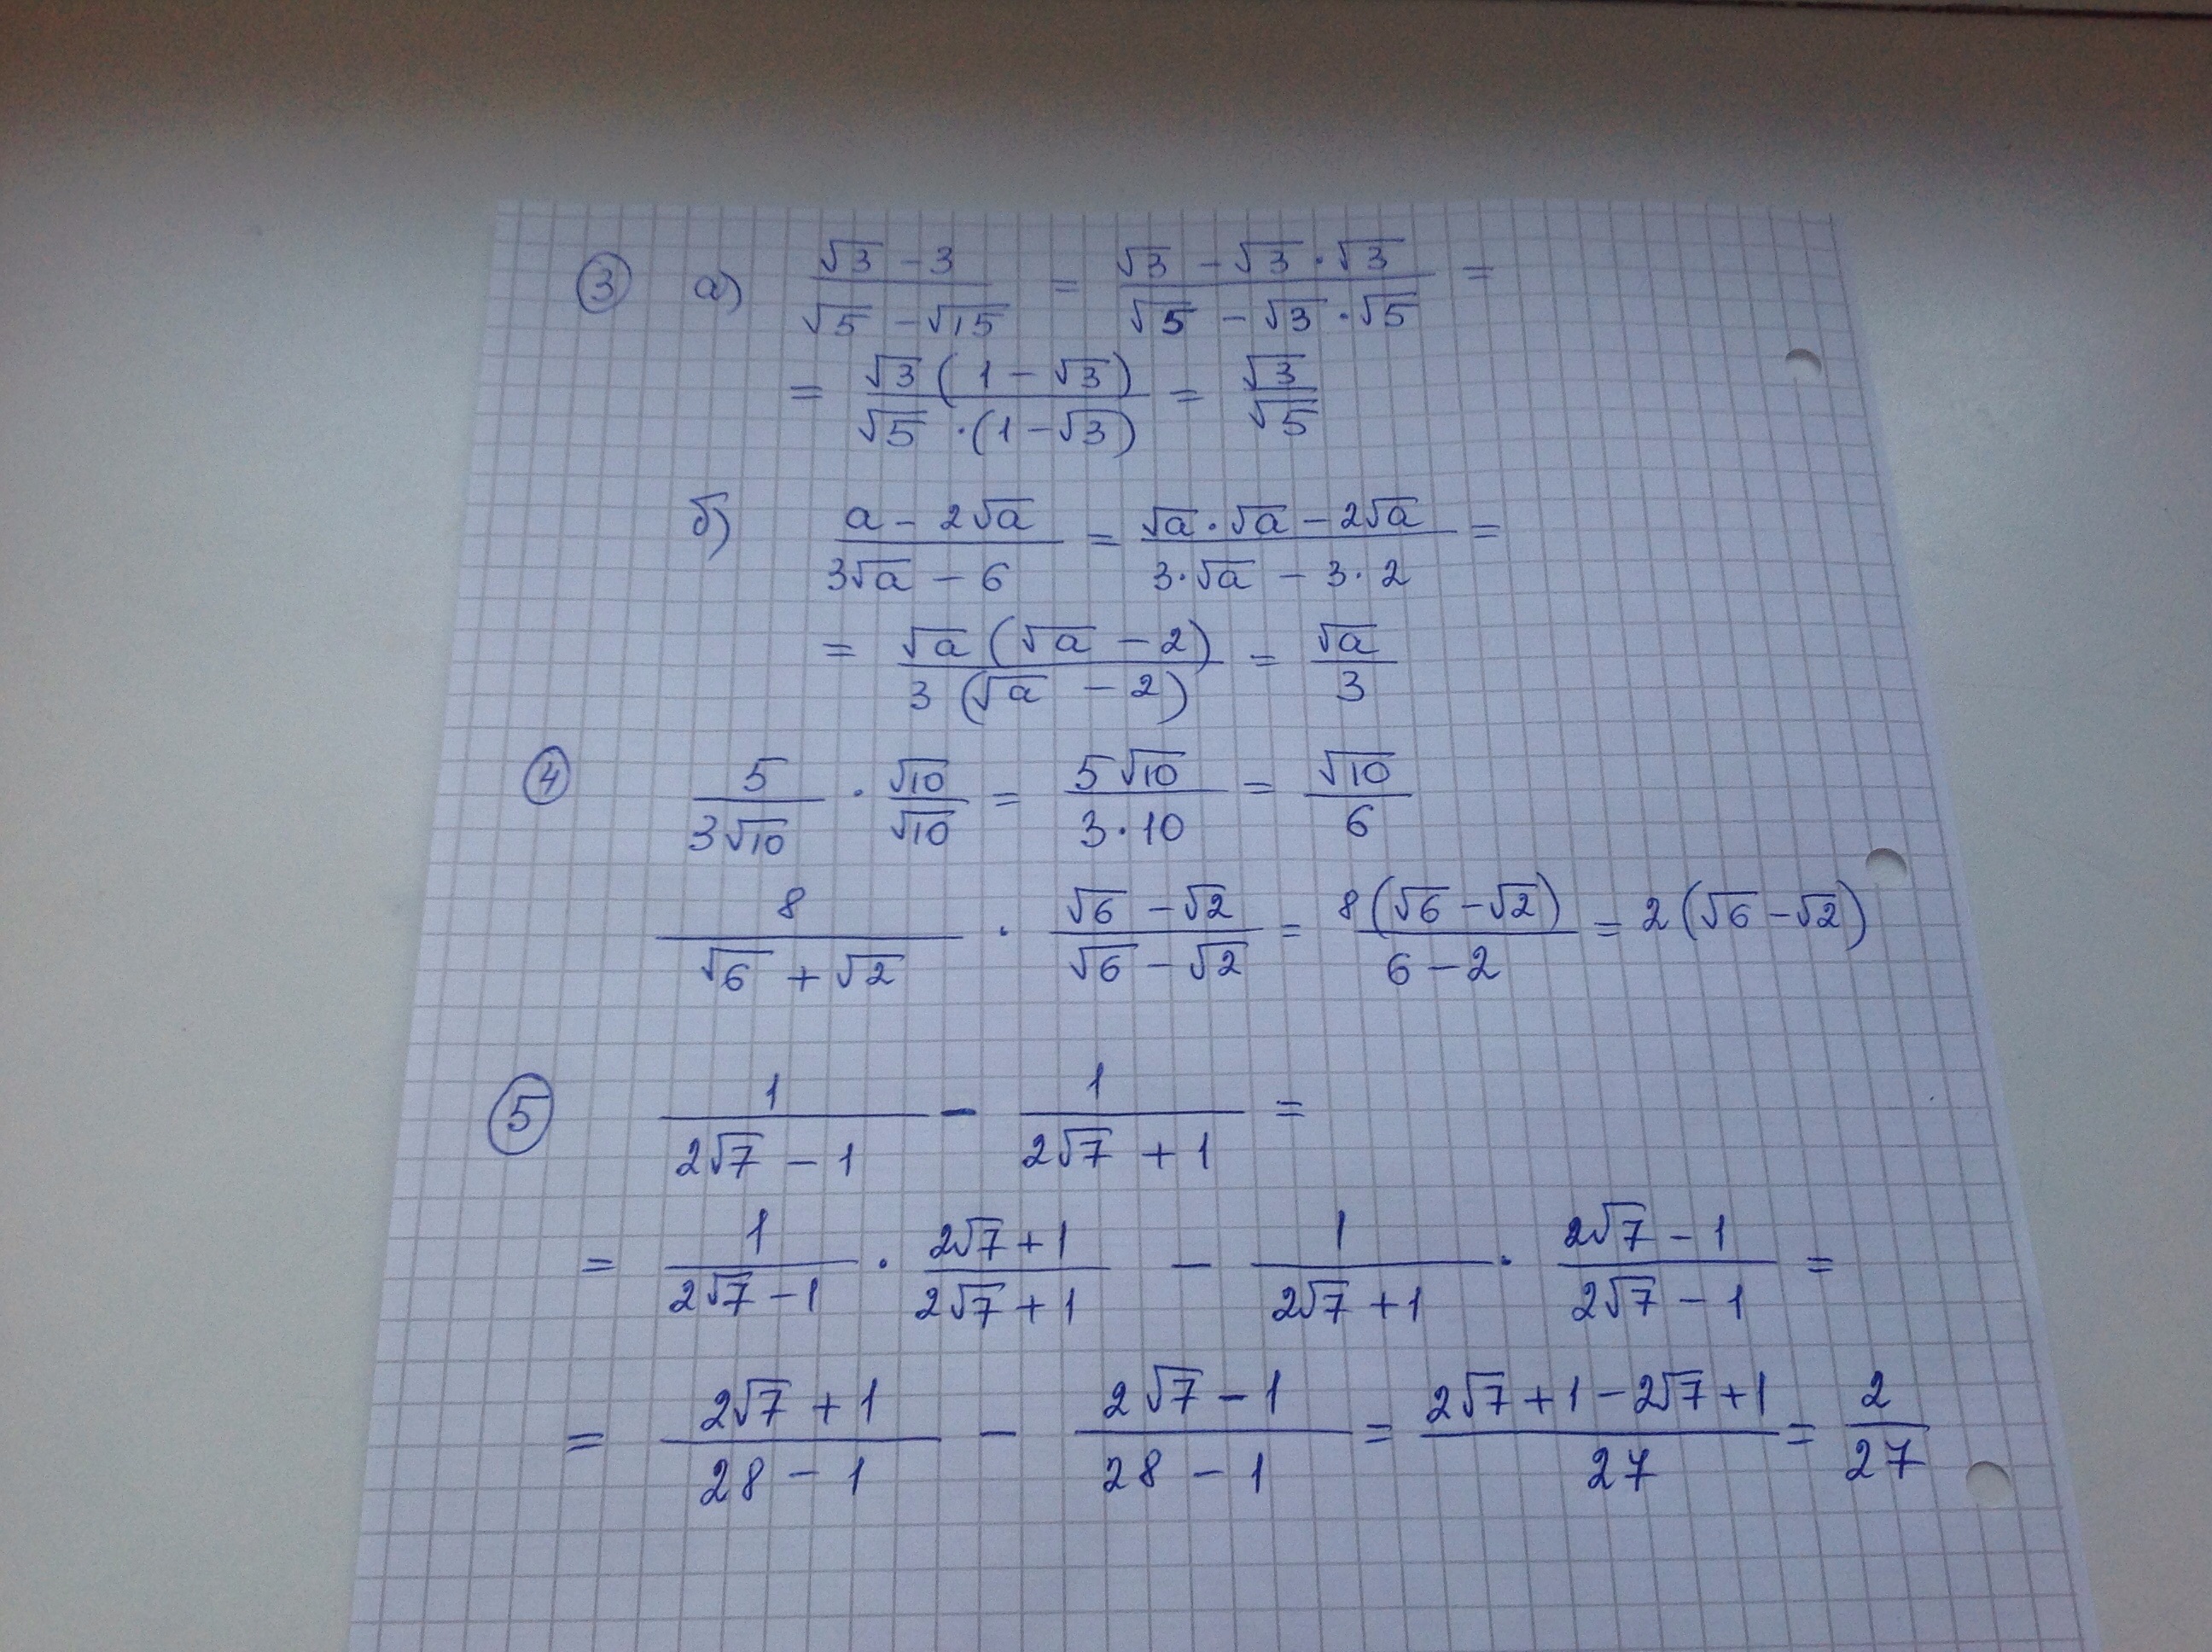 ③ а) (√3 - 3)/(√5 - √15) = (√3 - √3·√3)/(√5 - √3·√5) =
= (√3(1 - √3))/(√5·(1 - √3)) = √3/√5
б) (a - 2√a)/(3√a - 6) = (√a·√a - 2√a)/(3·√a - 3·2) =
= (√a(√a - 2))/(3(√a - 2)) = √a/3
④ 5/(3√10) · √10/√10 = 5√10/(3·10) = √10/6
8/(√6 + √2) · (√6 - √2)/(√6 - √2) = 8(√6 - √2)/(6 - 2) = 2(√6 - √2)
⑤ 1/(2√7 - 1) - 1/(2√7 + 1) =
= 1/(2√7 - 1) · (2√7 + 1)/(2√7 + 1) - 1/(2√7 + 1) · (2√7 - 1)/(2√7 - 1) =
= (2√7 + 1)/(28 - 1) - (2√7 - 1)/(28 - 1) = (2√7 + 1 - 2√7 + 1)/27 = 2/27